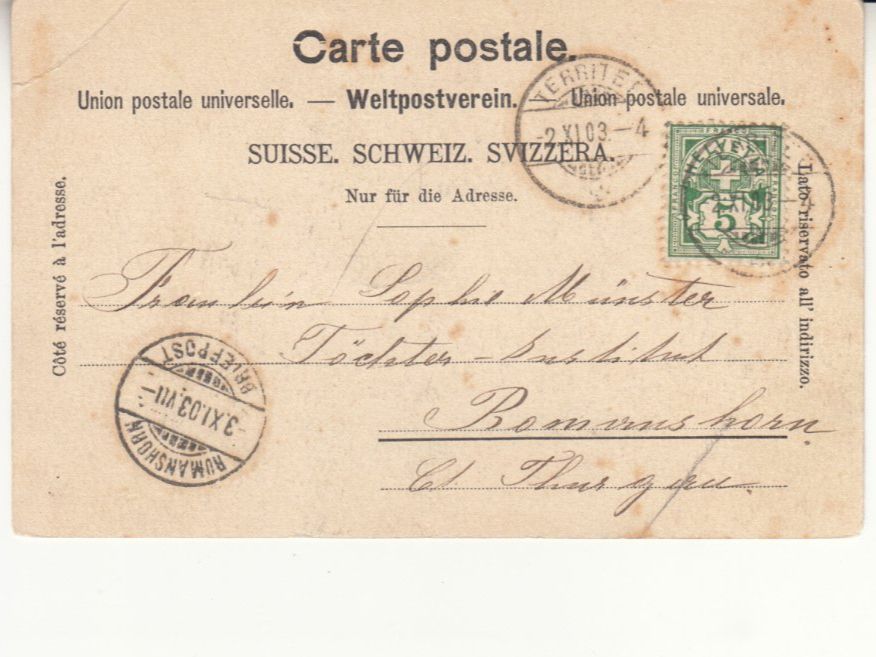 Carte postale.
Union postale universelle. — Weltpostverein. Union postale universale.
SUISSE. SCHWEIZ. SVIZZERA.
Nur für die Adresse.
Côté réservé à l'adresse.
Lato riservato all' indirizzo.
TERRITET
-2.XI.03.-4
HELVETIA
FRANCO
5
XI.03.-4
Fraulein Sophie Münster
Töchter-Institut
Romanshorn
Ct Thurgau
BRIEFPOST
3.XI.03.VII-
ROMANSHORN